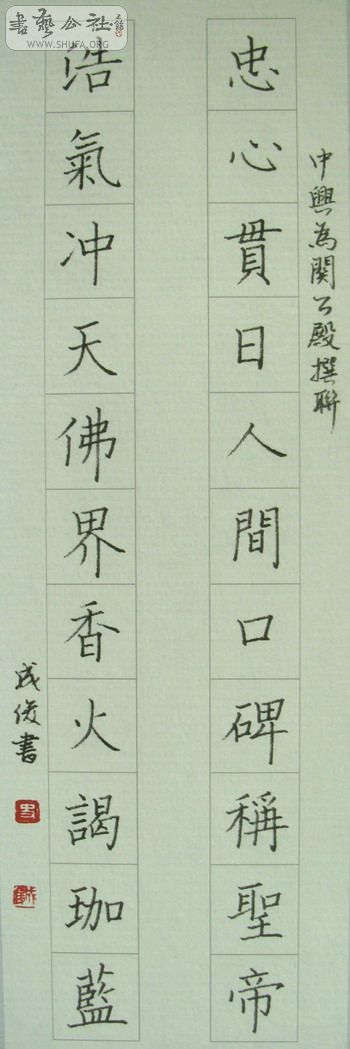 書藝公社
WWW.SHUFA.ORG
中興為関公殿撰聯
忠心貫日人間口碑稱聖帝
浩氣冲天佛界香火謁珈藍
成俊書